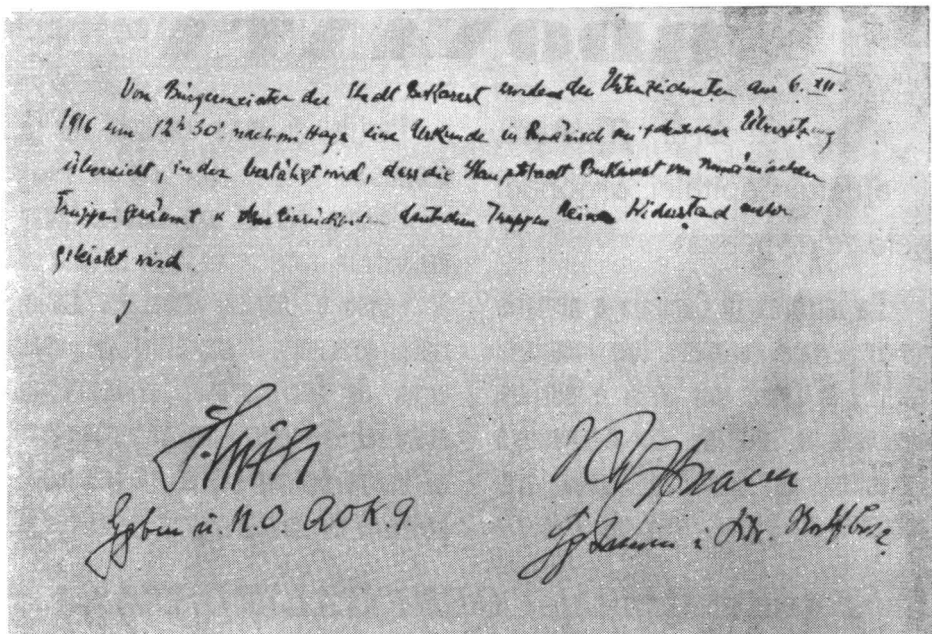 Vom Bürgermeister der Stadt Bukarest wurde den Unterzeichneten am 6. XII.
1916 um 12h 30' nachmittags eine Urkunde in Rumänisch mit deutscher Übersetzung
überreicht, in der bestätigt wird, dass die Hauptstadt Bukarest von rumänischen
Truppen geräumt u. den einrückenden deutschen Truppen keinen Widerstand mehr
geleistet wird.
u. N.O. AOK. 9.